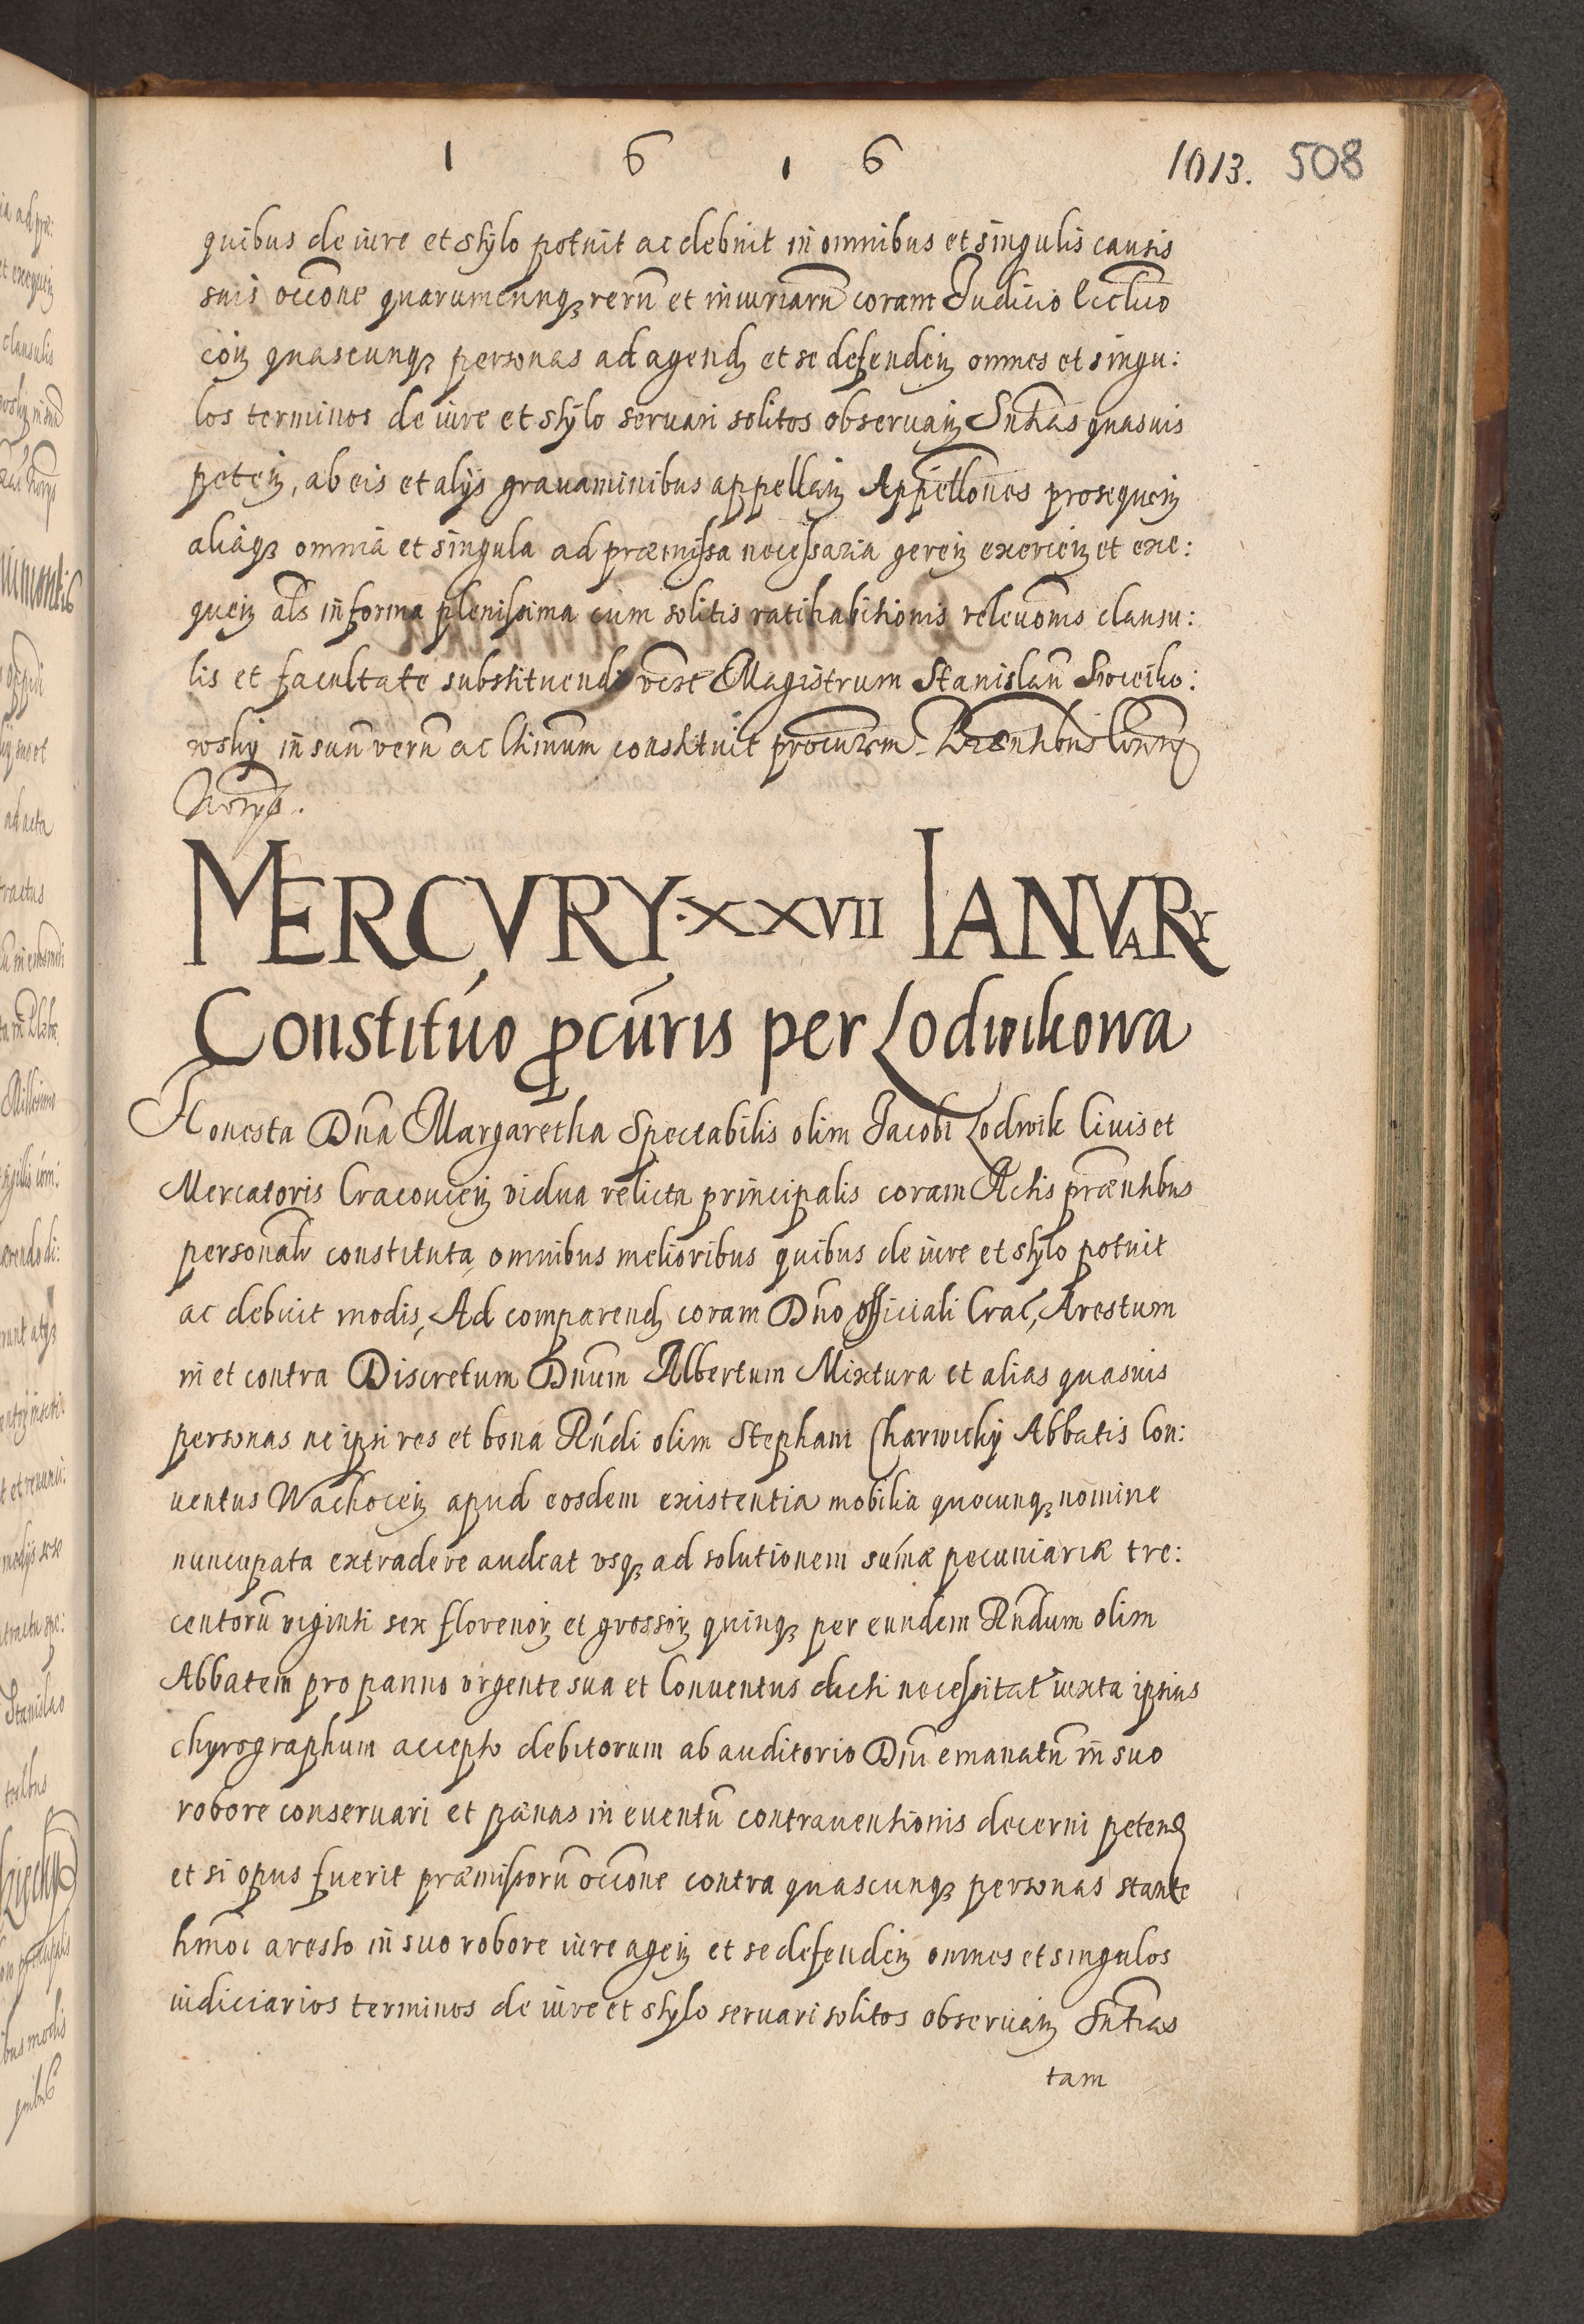 1 6 1 6 1013. 508
quibus de iure et stylo potuit ac debuit in omnibus et singulis causis
suis occōne quarumcunqꝫ rerū et iniuriarū coram Iudicio
quascunqꝫ personas ad agendꝫ et se defendeñ omnes et singu:
los terminos de iure et stylo seruari solitos obseruañ Sntias quasuis
peteñ, ab eis et alijs grauaminibus appellañ Appellōnes prosequeñ
aliaqꝫ omnia et singula ad præmissa necessaria gereñ exerceñ et exe:
queñ als in forma plenissima cum solitis ratihabitionis releuōnis clausu:
lis et facultate substituendi Magistrum Stanislaū
in suū verū ac ltimum constituit procurem. Præntibus
MERCVRY·XXVII IANVARY
Constitutio ꝓcuris per Lodwikowa
Honesta Dna Margaretha Spectabilis olim Jacobi Lodwik Ciuis et
Mercatoris Cracouieñ vidua relicta principalis coram Actis præntibus
personalr constituta, omnibus melioribus quibus de iure et stylo potuit
ac debuit modis, Ad comparendꝫ coram Dno officiali Crac, Arestum
in et contra Discretum Dnum Albertum Mixtura et alias quasuis
personas ne ipsi res et bona Rndi olim Stephani Charwicky Abbatis Con:
uentus Wachoceñ apud eosdem existentia mobilia quocunqꝫ nomine
nuncupata extradere audeat vsqꝫ ad solutionem sumæ pecuniariæ tre:
centorū viginti sex florenoꝝ et grossoꝝ quinqꝫ per eundem Rndum olim
Abbatem pro panno vrgente sua et Conuentus dicti necessitat iuxta ipsius
chyrographum accepto debitorum ab auditorio Dni emanatū in suo
robore conseruari et pænas in euentū contrauentionis decerni petendꝫ
et si opus fuerit præmissorū occōne contra quascunqꝫ personas stante
hmōi aresto in suo robore iure ageñ et se defendeñ omnes et singulos
iudiciarios terminos de iure et stylo seruari solitos obseruañ Sntias
tam